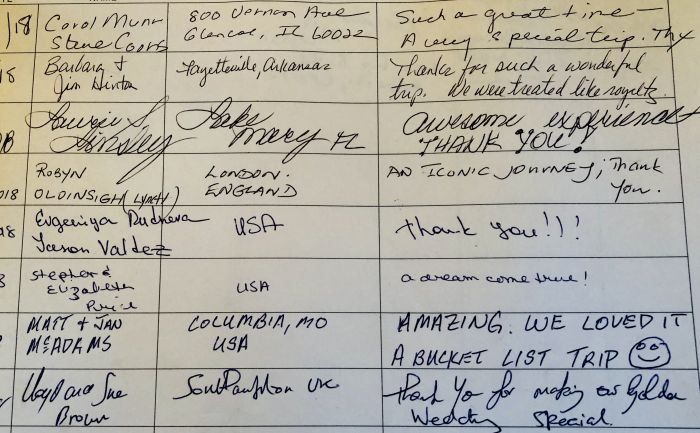 18 Carol Munr 800 Vernon Ave Such a great time —
Steve Coors Glencoe, IL 60022 A very special trip. Thx
18 Barbara & Fayetteville, Arkansas Thanks for such a wonderful
Jim Hinton trip. We were treated like royalty.
Laurie S. Lake awesome experience
Ainsley Mary FL THANK YOU!
ROBYN LONDON. AN ICONIC JOURNEY; Thank
018 OLDINSIGH (LYNCH) ENGLAND You.
18 Evgeniya Rudneva USA thank you!!!
Jason Valdez
Stephen & USA a dream come true!
Elizabeth
Price
MATT & JAN COLUMBIA, MO AMAZING. WE LOVED IT
McADAMS USA A BUCKET LIST TRIP
Lloyd and Sue Southampton UK Thank You for making our Golden
Brown Wedding Special.